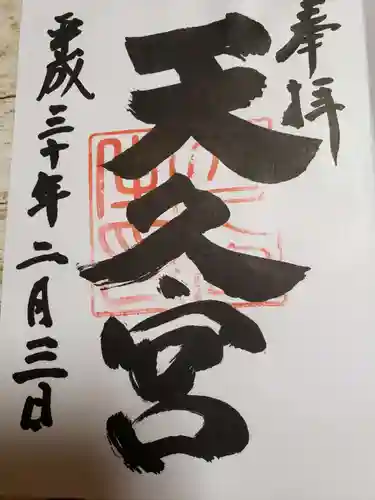 奉拝
天久宮
平成三十年二月三日